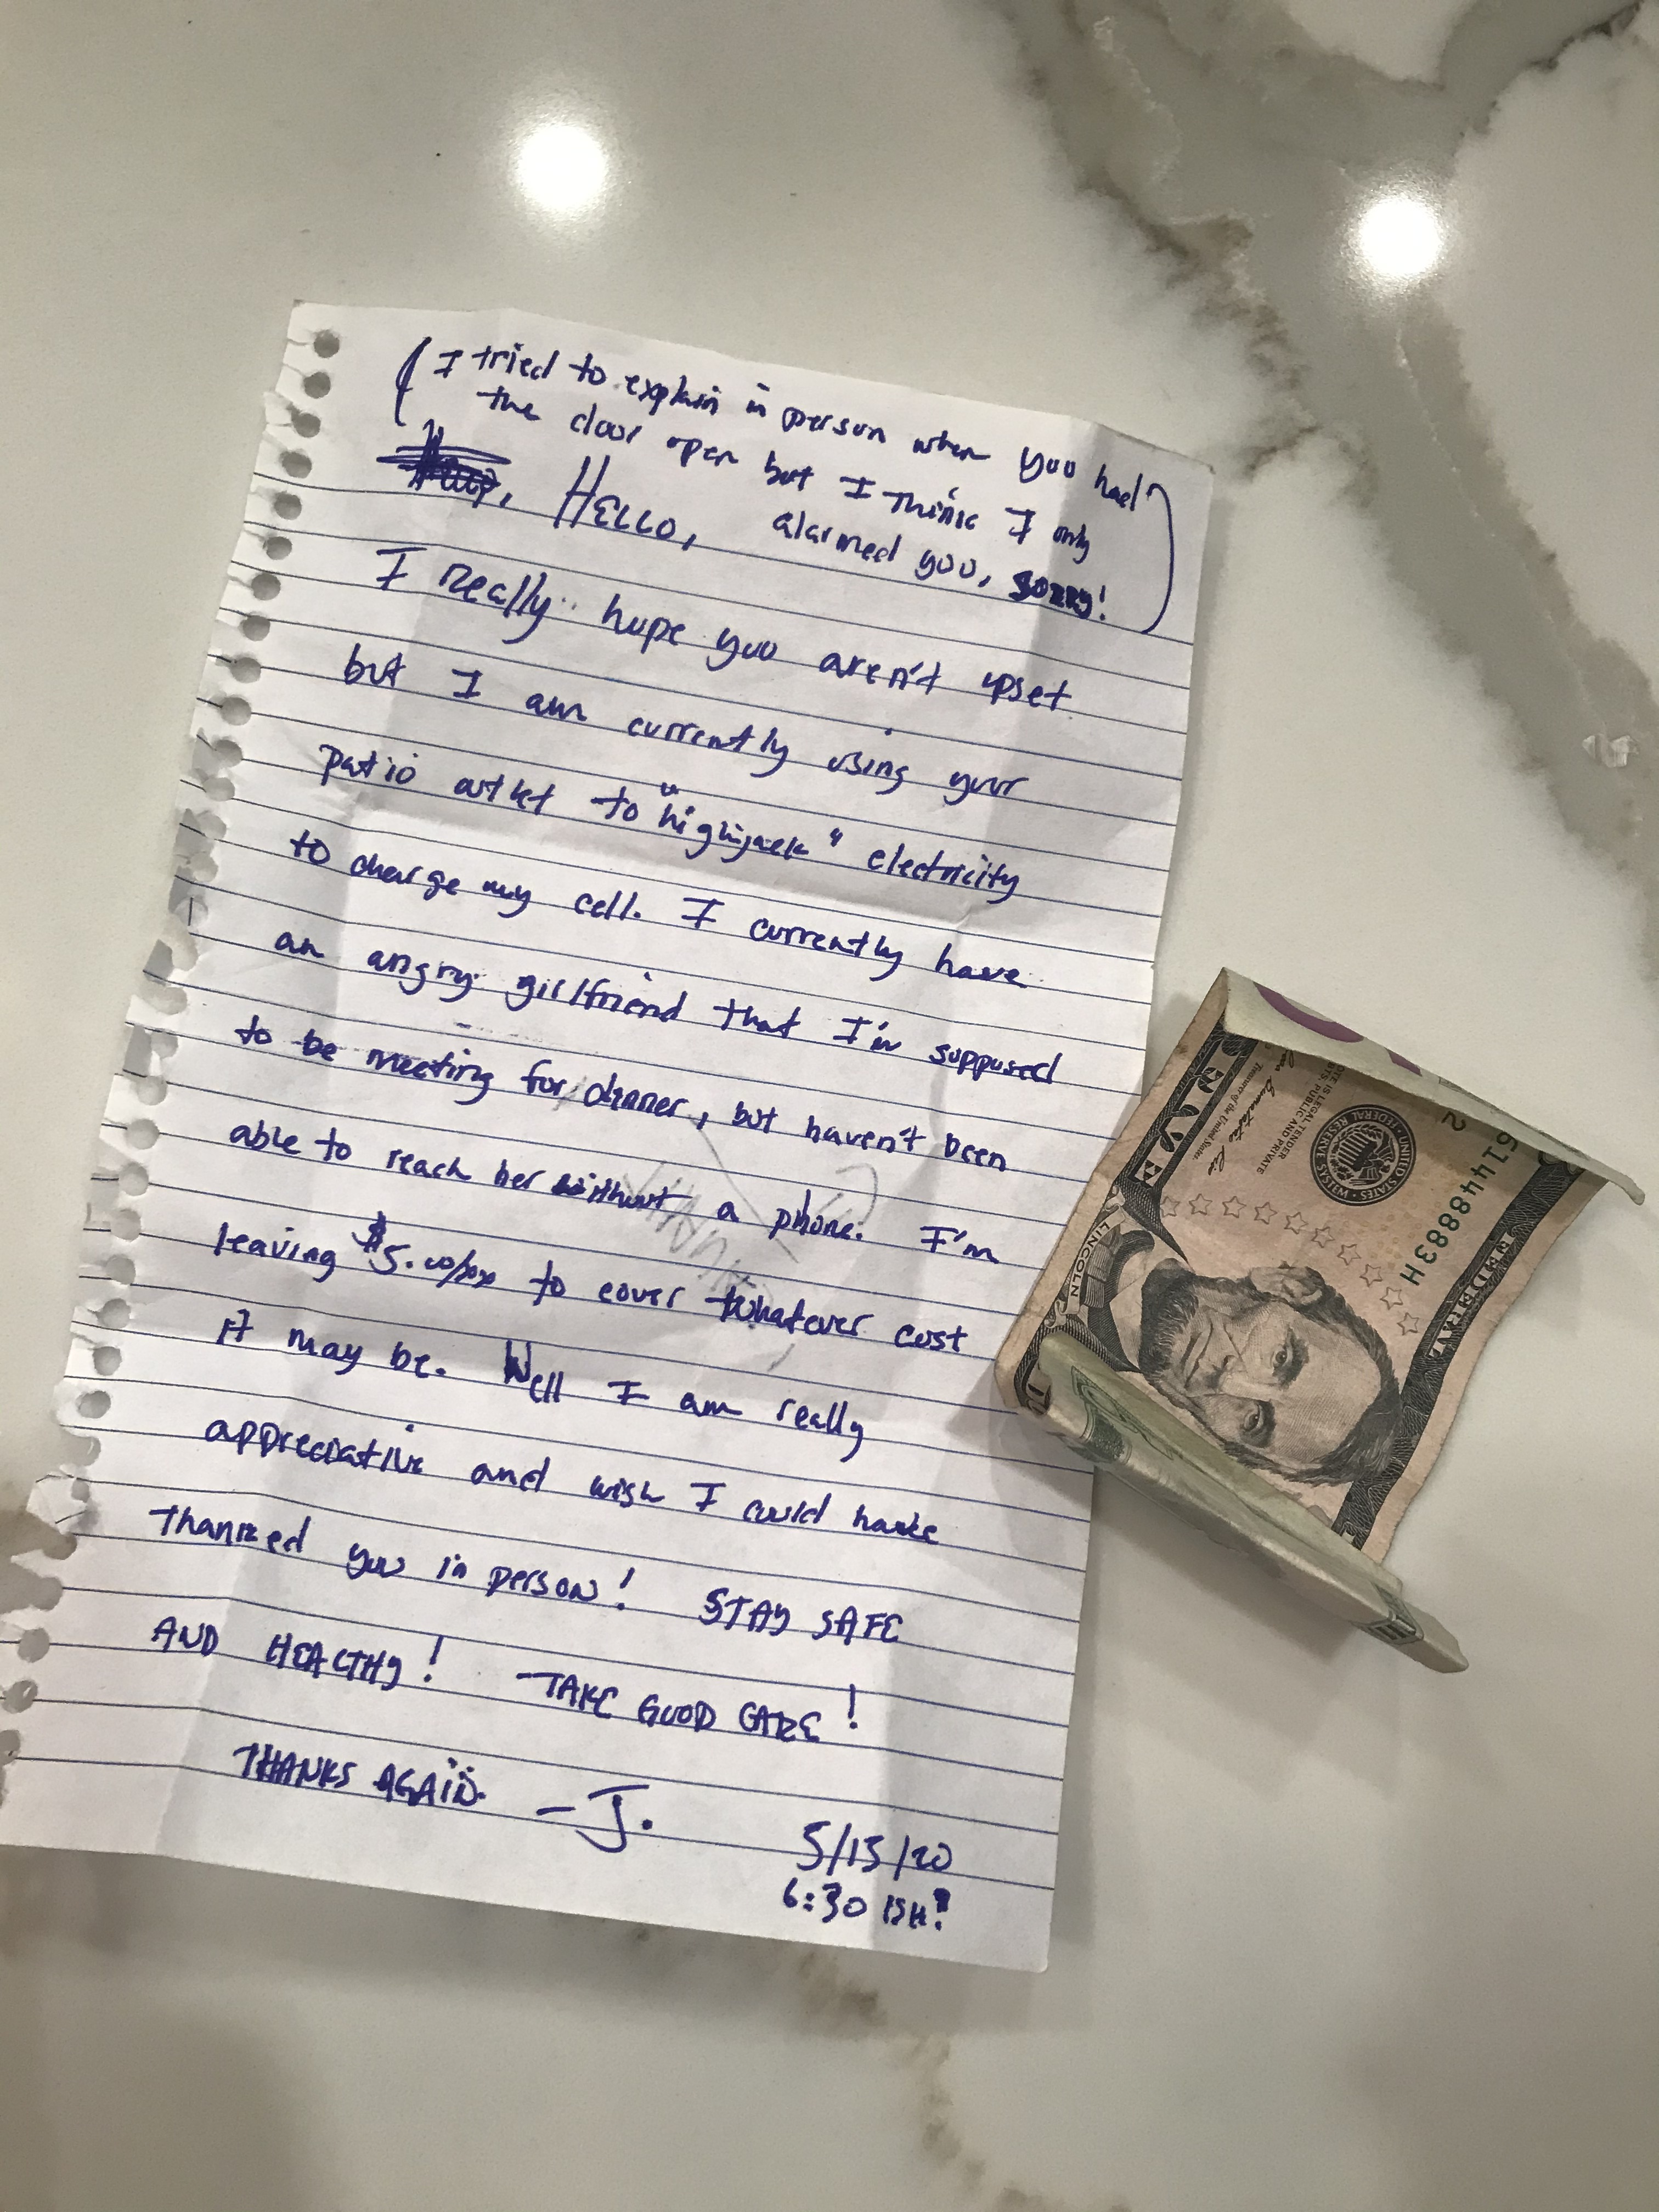 (I tried to explain in person when you had
the door open but I think I only
alarmed you, SORRY!)
HELLO,
I really hope you aren't upset
but I am currently using your
patio outlet to "highjack" electricity
to charge my cell. I currently have
an angry girlfriend that I'm supposed
to be meeting for dinner, but haven't been
able to reach her without a phone. I'm
leaving $5.00/xx to cover whatever cost
it may be. Well I am really
appreciative and wish I could have
Thanked you in person! STAY SAFE
AND HEALTHY! TAKE GOOD CARE!
THANKS AGAIN. -J.
5/15/20
6:30 ISH!
FIVE
FEDERAL
UNITED STATES
FEDERAL RESERVE SYSTEM
Treasurer of the United States.
LINCOLN
61448883H